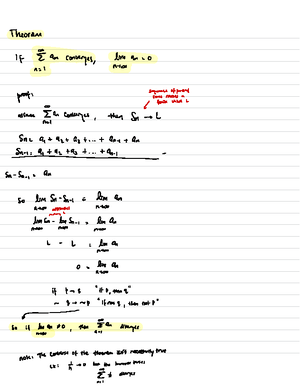 Theorem
If ∞ Σ n=1 an converges, lim n→∞ an = 0
proof:
assume ∞ Σ n=1 an converges, then Sn → L
sequence of partial sums
Sn = a1 + a2 + a3 + ... + an-1 + an
Sn-1 = a1 + a2 + a3 + ... + an-1
Sn - Sn-1 = an
So lim n→∞ Sn - Sn-1 = lim n→∞ an
lim n→∞ Sn - lim n→∞ Sn-1 = lim n→∞ an
L - L = lim n→∞ an
0 = lim n→∞ an
if p → q "if p, then q"
~q → ~p "if not q, then not p"
So if lim n→∞ an ≠ 0, then ∞ Σ n=1 an diverges
note: The converse of the theorem isn't necessarily true
ex: 1/n → 0 but the harmonic series
∞ Σ n=1 1/n diverges